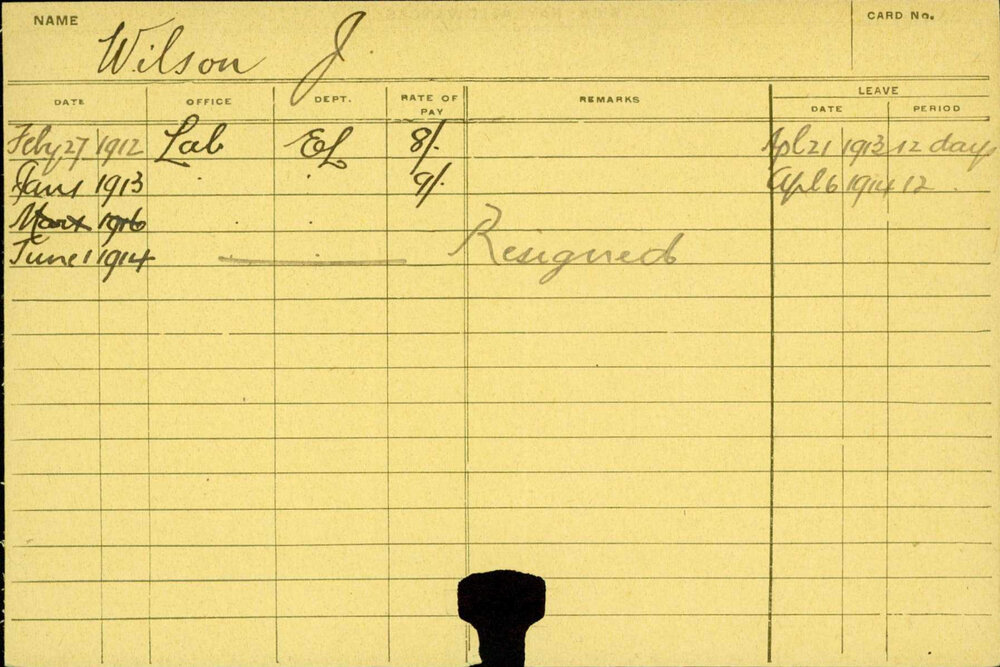 NAME Wilson J. CARD No.
DATE OFFICE DEPT. RATE OF PAY REMARKS LEAVE DATE PERIOD
Feby 27 1912 Lab EL 8/. Apl 21 1913 12 days
Jany 1 1913 . . 9/. Apl 6 1914 12 .
1916 . .
June 1 1914 Resigned